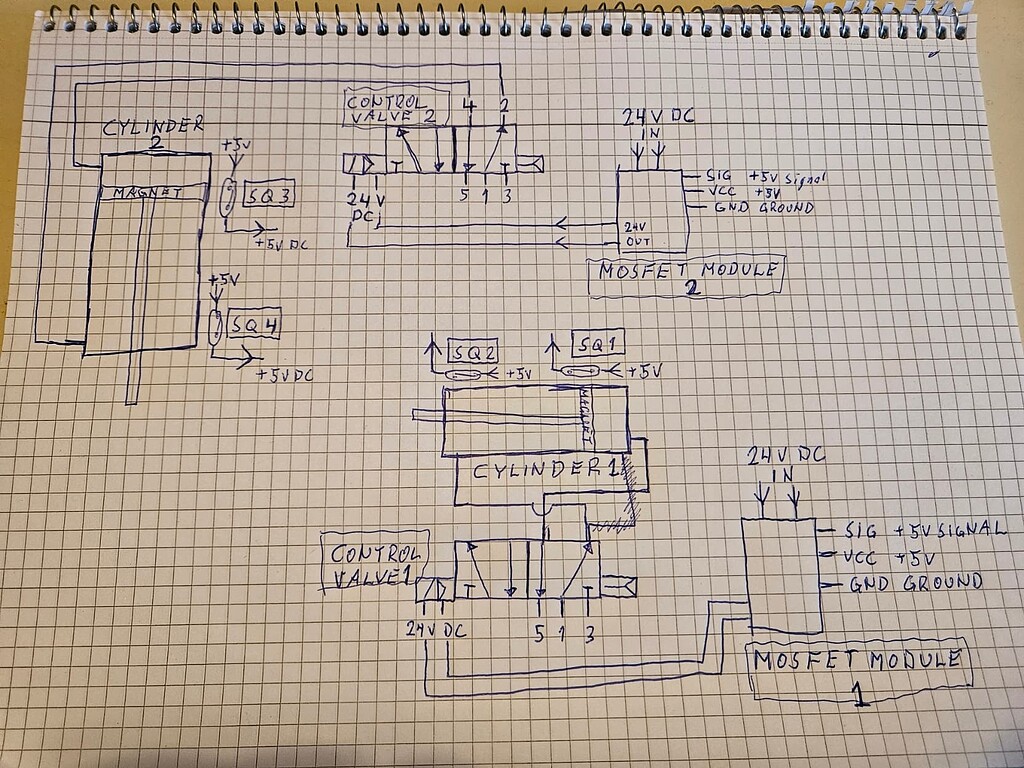 CONTROL
VALVE 2
4
2
CYLINDER
2
+5V
MAGNET
SQ3
+5V DC
+5V
SQ4
+5V DC
24 V
DC
5 1 3
24V DC
IN
SIG +5V Signal
VCC +5V
GND GROUND
24V
OUT
MOSFET MODULE
2
SQ2
SQ1
+5V
+5V
MAGNET
CYLINDER 1
CONTROL
VALVE 1
24V DC
5 1 3
24V DC
IN
SIG +5V SIGNAL
VCC +5V
GND GROUND
MOSFET MODULE
1